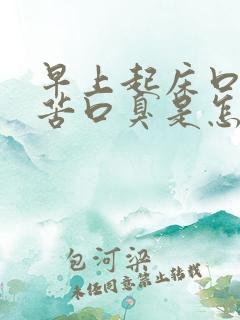 早上起床口
苦口臭是怎
包河梁
未经同意禁止转载